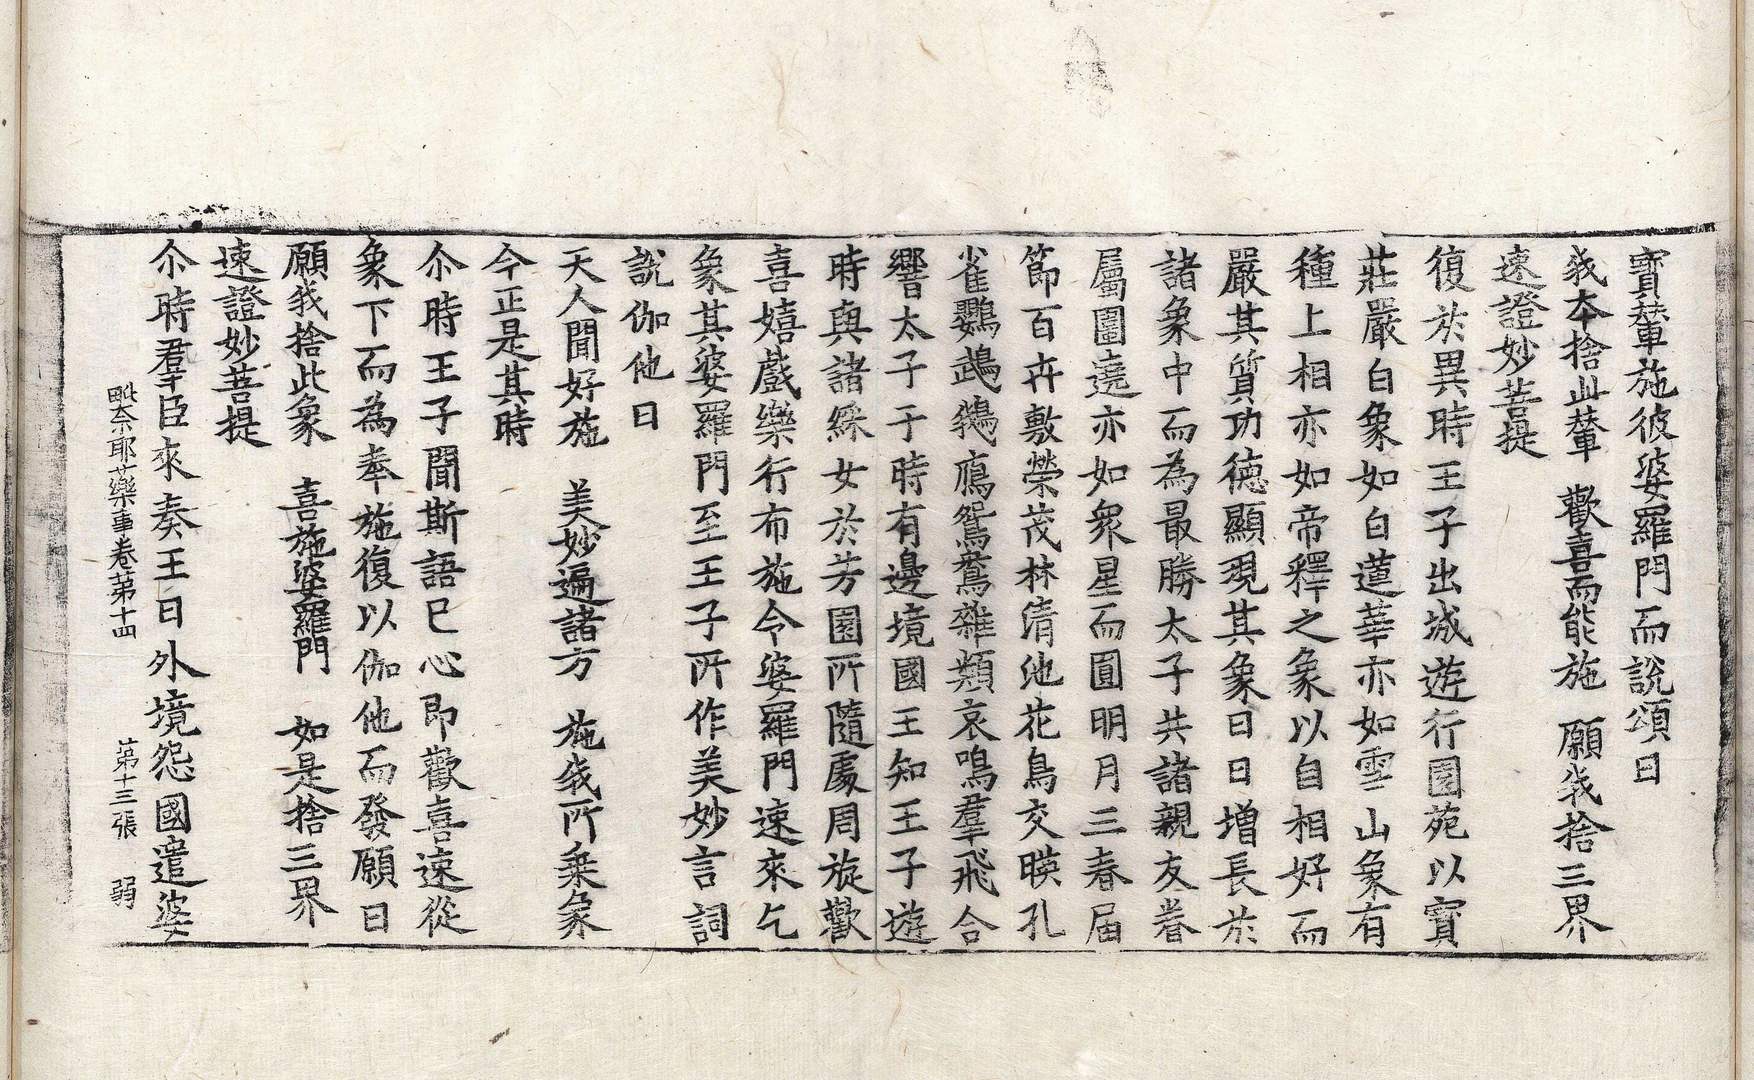 寶輦施彼婆羅門而說頌曰
我本捨此輦　歡喜而能施　願我捨三界
速證妙菩提
復於異時王子出城遊行園苑以寶
莊嚴白象如白蓮華亦如雪山象有
種上相亦如帝釋之象以自相好而
嚴其質功德顯現其象日日增長於
諸象中而為最勝太子共諸親友眷
屬圍遶亦如衆星而圓明月三春届
節百卉敷榮茂林清池花鳥交暎孔
雀鸚鵡鵝鴈鴛鴦雜類哀鳴羣飛合
響太子于時有邊境國王知王子遊
時與諸婇女於芳園所隨處周旋歡
喜嬉戲樂行布施令婆羅門速來乞
象其婆羅門至王子所作美妙言詞
說伽他曰
天人聞好施　美妙遍諸方　施我所乘象
今正是其時
尒時王子聞斯語已心即歡喜速從
象下而為奉施復以伽他而發願曰
願我捨此象　喜施婆羅門　如是捨三界
速證妙菩提
尒時羣臣來奏王曰外境怨國遣婆
毗奈耶藥事卷第十四　第十三張　弱